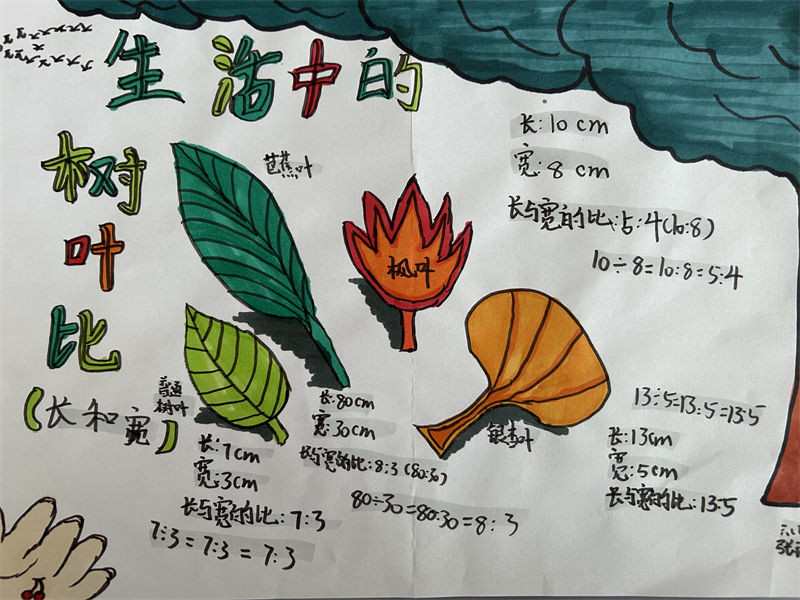 生活中的
树
叶
比
(长和宽)
芭蕉叶
枫叶
长:10cm
宽:8cm
长与宽的比:占:4(10:8)
10÷8=10:8=5:4
普通
树叶
长:7cm
宽:3cm
长与宽的比:7:3
7:3=7:3=7:3
长:80cm
宽:30cm
长与宽的比:8:3(80:30)
80÷30=80:30=8:3
银杏叶
13÷5=13:5=13:5
长:13cm
宽:5cm
长与宽的比:13:5